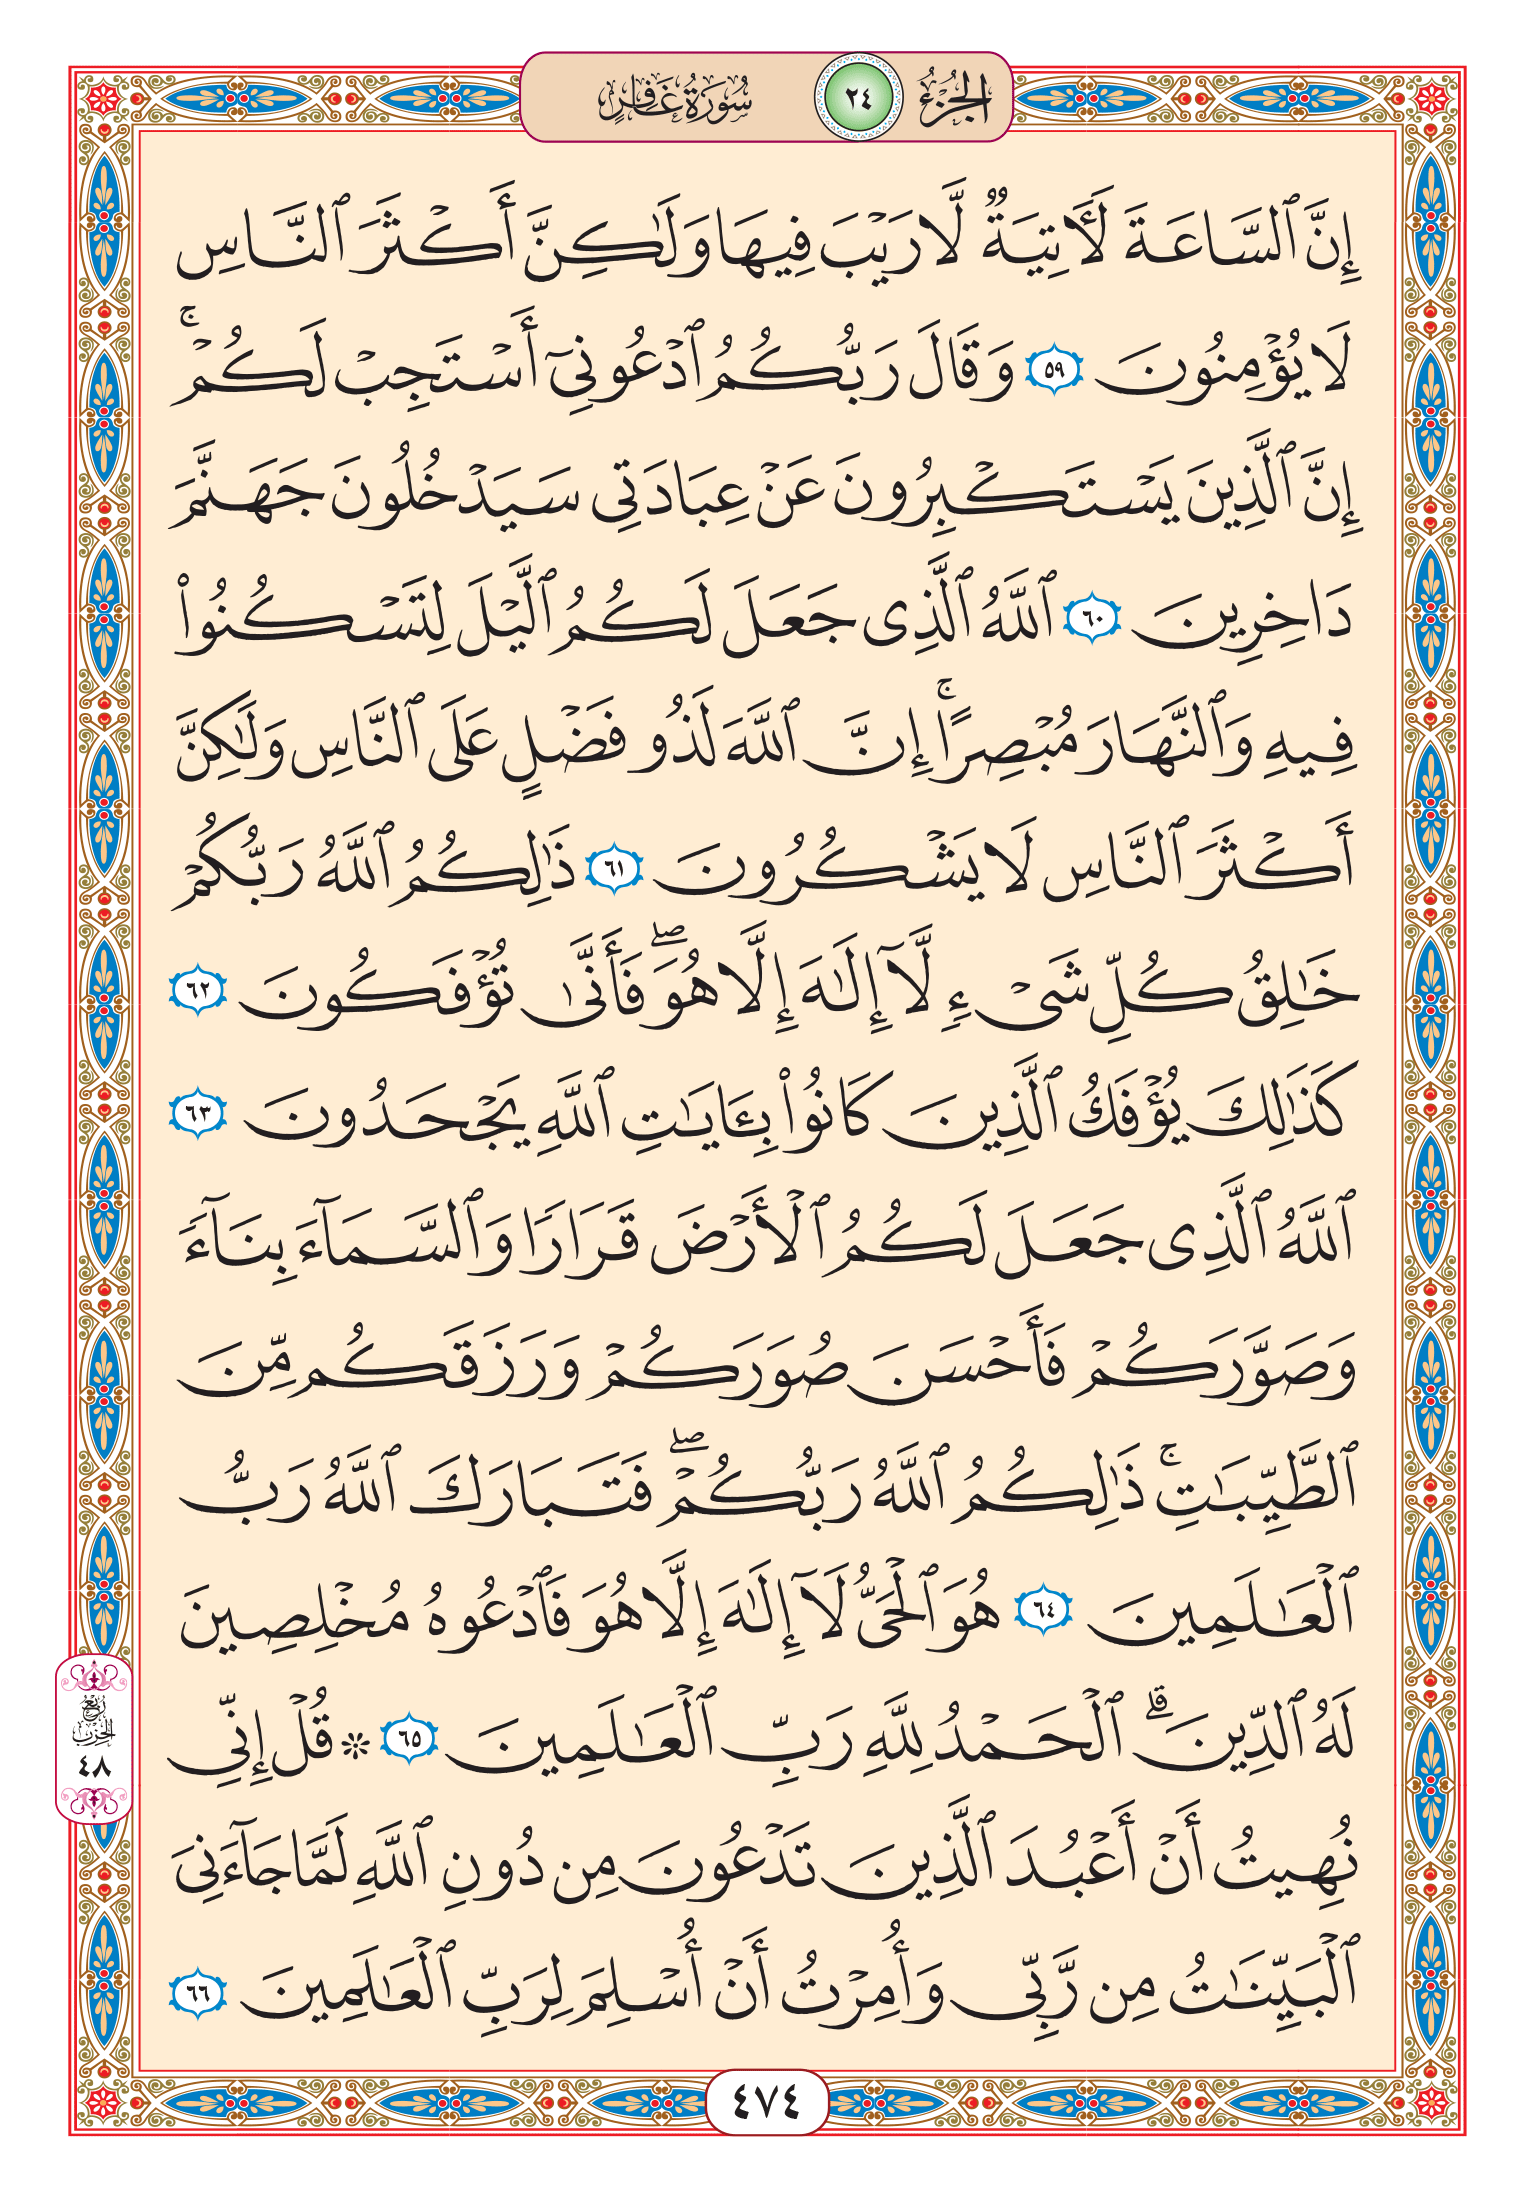 الجزء ٢٤ سورة غافر
إِنَّ ٱلسَّاعَةَ لَأٓتِيَةٌ لَّا رَيْبَ فِيهَا وَلَٰكِنَّ أَكْثَرَ ٱلنَّاسِ
لَا يُؤْمِنُونَ ٥٩ وَقَالَ رَبُّكُمُ ٱدْعُونِىٓ أَسْتَجِبْ لَكُمْ ۚ
إِنَّ ٱلَّذِينَ يَسْتَكْبِرُونَ عَنْ عِبَادَتِى سَيَدْخُلُونَ جَهَنَّمَ
دَاخِرِينَ ٦٠ ٱللَّهُ ٱلَّذِى جَعَلَ لَكُمُ ٱلَّيْلَ لِتَسْكُنُوا۟
فِيهِ وَٱلنَّهَارَ مُبْصِرًا ۚ إِنَّ ٱللَّهَ لَذُو فَضْلٍ عَلَى ٱلنَّاسِ وَلَٰكِنَّ
أَكْثَرَ ٱلنَّاسِ لَا يَشْكُرُونَ ٦١ ذَٰلِكُمُ ٱللَّهُ رَبُّكُمْ
خَٰلِقُ كُلِّ شَىْءٍ لَّآ إِلَٰهَ إِلَّا هُوَ ۖ فَأَنَّىٰ تُؤْفَكُونَ ٦٢
كَذَٰلِكَ يُؤْفَكُ ٱلَّذِينَ كَانُوا۟ بِـَٔايَٰتِ ٱللَّهِ يَجْحَدُونَ ٦٣
ٱللَّهُ ٱلَّذِى جَعَلَ لَكُمُ ٱلْأَرْضَ قَرَارًا وَٱلسَّمَآءَ بِنَآءً
وَصَوَّرَكُمْ فَأَحْسَنَ صُوَرَكُمْ وَرَزَقَكُم مِّنَ
ٱلطَّيِّبَٰتِ ۚ ذَٰلِكُمُ ٱللَّهُ رَبُّكُمْ ۖ فَتَبَارَكَ ٱللَّهُ رَبُّ
ٱلْعَٰلَمِينَ ٦٤ هُوَ ٱلْحَىُّ لَآ إِلَٰهَ إِلَّا هُوَ فَٱدْعُوهُ مُخْلِصِينَ
لَهُ ٱلدِّينَ ۗ ٱلْحَمْدُ لِلَّهِ رَبِّ ٱلْعَٰلَمِينَ ٦٥ ۞ قُلْ إِنِّى
ربع الحزب ٤٨
نُهِيتُ أَنْ أَعْبُدَ ٱلَّذِينَ تَدْعُونَ مِن دُونِ ٱللَّهِ لَمَّا جَآءَنِىَ
ٱلْبَيِّنَٰتُ مِن رَّبِّى وَأُمِرْتُ أَنْ أُسْلِمَ لِرَبِّ ٱلْعَٰلَمِينَ ٦٦
٤٧٤